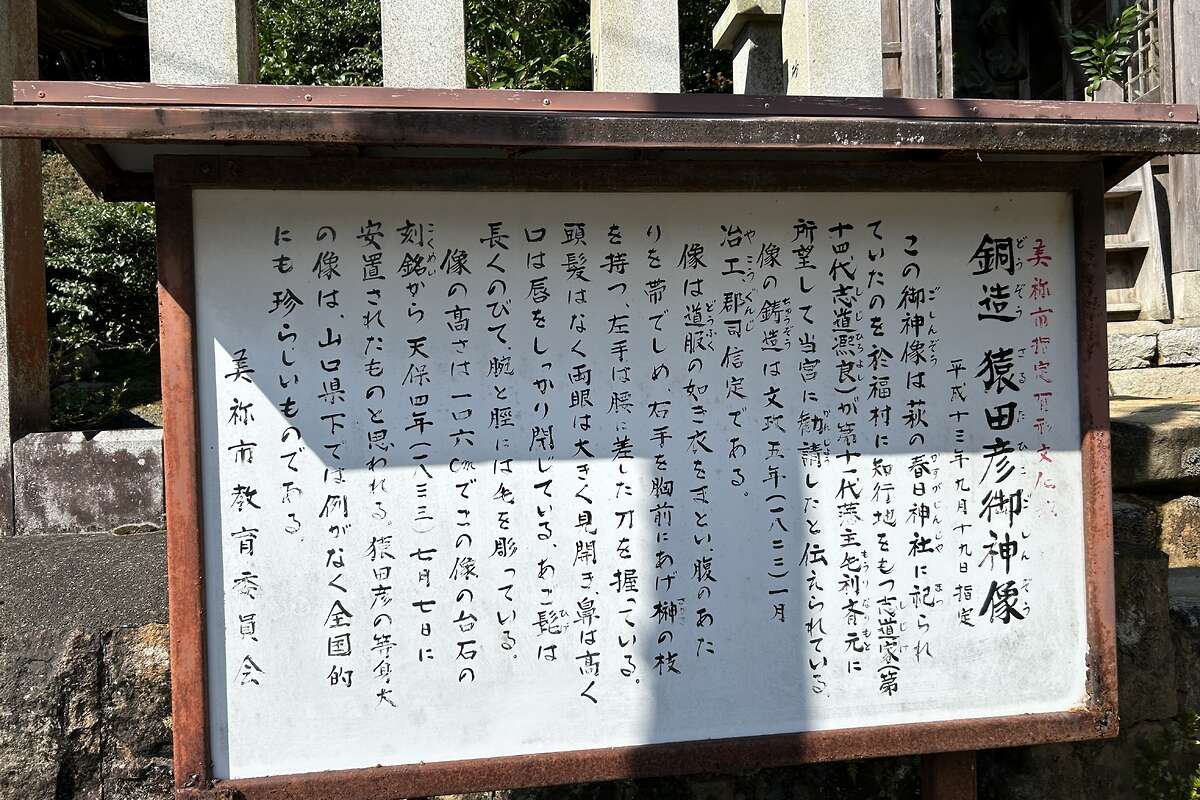 美祢市指定有形文化財
銅造 猿田彦御神像
どうぞう さるたひこごしんぞう
平成十三年九月十九日指定
この御神像は萩の春日神社に祀られ
ごしんぞう かすがじんじゃ まつ
ていたのを於福村に知行地をもつ志道家(第
しじけ
十四代志道熈良)が第十一代藩主毛利斉元に
しじひろよし もうりなりもと
所望して当宮に勧請したと伝えられている。
かんじょう
像の鋳造は文政五年(一八二二)一月
ちゅうぞう
冶工郡司信定である。
やこうぐんじ
像は道服の如き衣をまとい、腹のあた
どうふく
りを帯でしめ、右手を胸前にあげ榊の枝
さかき
を持つ、左手は腰に差した刀を握っている。
頭髪はなく両眼は大きく見開き、鼻は高く
口は唇をしっかり閉じている、あご髭は
ひげ
長くのびて、腕と脛には毛を彫っている。
像の高さは一〇六cmでこの像の台石の
刻銘から天保四年(一八三三)七月七日に
こくめい
安置されたものと思われる。猿田彦の等身大
の像は、山口県下では例がなく全国的
にも珍らしいものである。
美祢市教育委員会